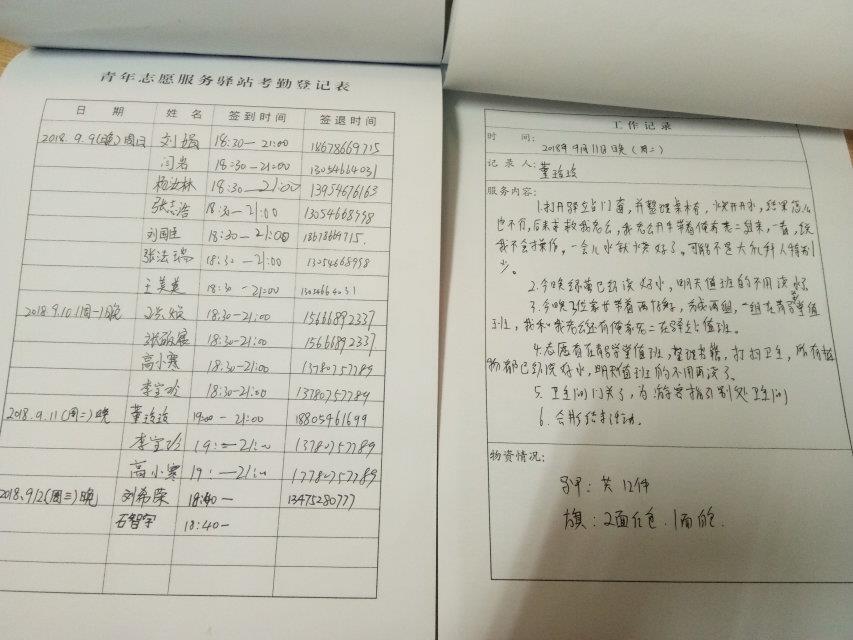 青年志愿服务驿站考勤登记表
日 期 姓 名 签到时间 签退时间
2018.9.9(晚)周日 刘娟 18:30—21:00 18678669715
闫岩 18:30—21:00 13054664031
杨汝林 18:30—21:00 13954676163
张志浩 18:30—21:00 13054668998
刘国臣 18:30—21:00 18678669715.
张法瑞 18:30—21:00 13054668998
王英英 18:30—21:00 13054664031
2018.9.10(周一)晚 18:30-21:00 15666892337
18:30-21:00 15666892337
高小寒 18:30-21:00 13780757789
李宝珍 18:30-21:00 13780757789
2018.9.11(周二)晚 董珍珍 19:00—21:00 18805461699
李宝珍 19:—21:00 13780757789
高小寒 19:—21:00 17780757789
2018.9.12(周三)晚 刘希荣 18:40— 13475280777
石智宇 18:40—
工作记录
时 间: 2018年9月11日晚(周二)
记录人: 董珍珍
服务内容:
1.打开驿站门窗,并整理桌椅,烧开开水,结果怎么
也不行,后来求救我老公,我老公开车带着傅希尧二姐来,一看,是
我不会操作,一会儿水就烧好了。可能不是大礼拜人特别
少。
2.今晚绿萝已经浇好水,明天值班的不用浇水了
3.今晚3位家长带着两位孩子,分成两组,一组在青年学堂值
班,我和我老公还有傅希尧二在驿站值班。
4.志愿者在青年学堂值班,整理书籍,打扫卫生,所有植
物都已经浇好水,明天值班的不用再浇了。
5.卫生间门关了,为游客指引别处卫生间
6.合影结束活动。
物资情况:
马甲:共12件
旗:2面红色.1面白色.